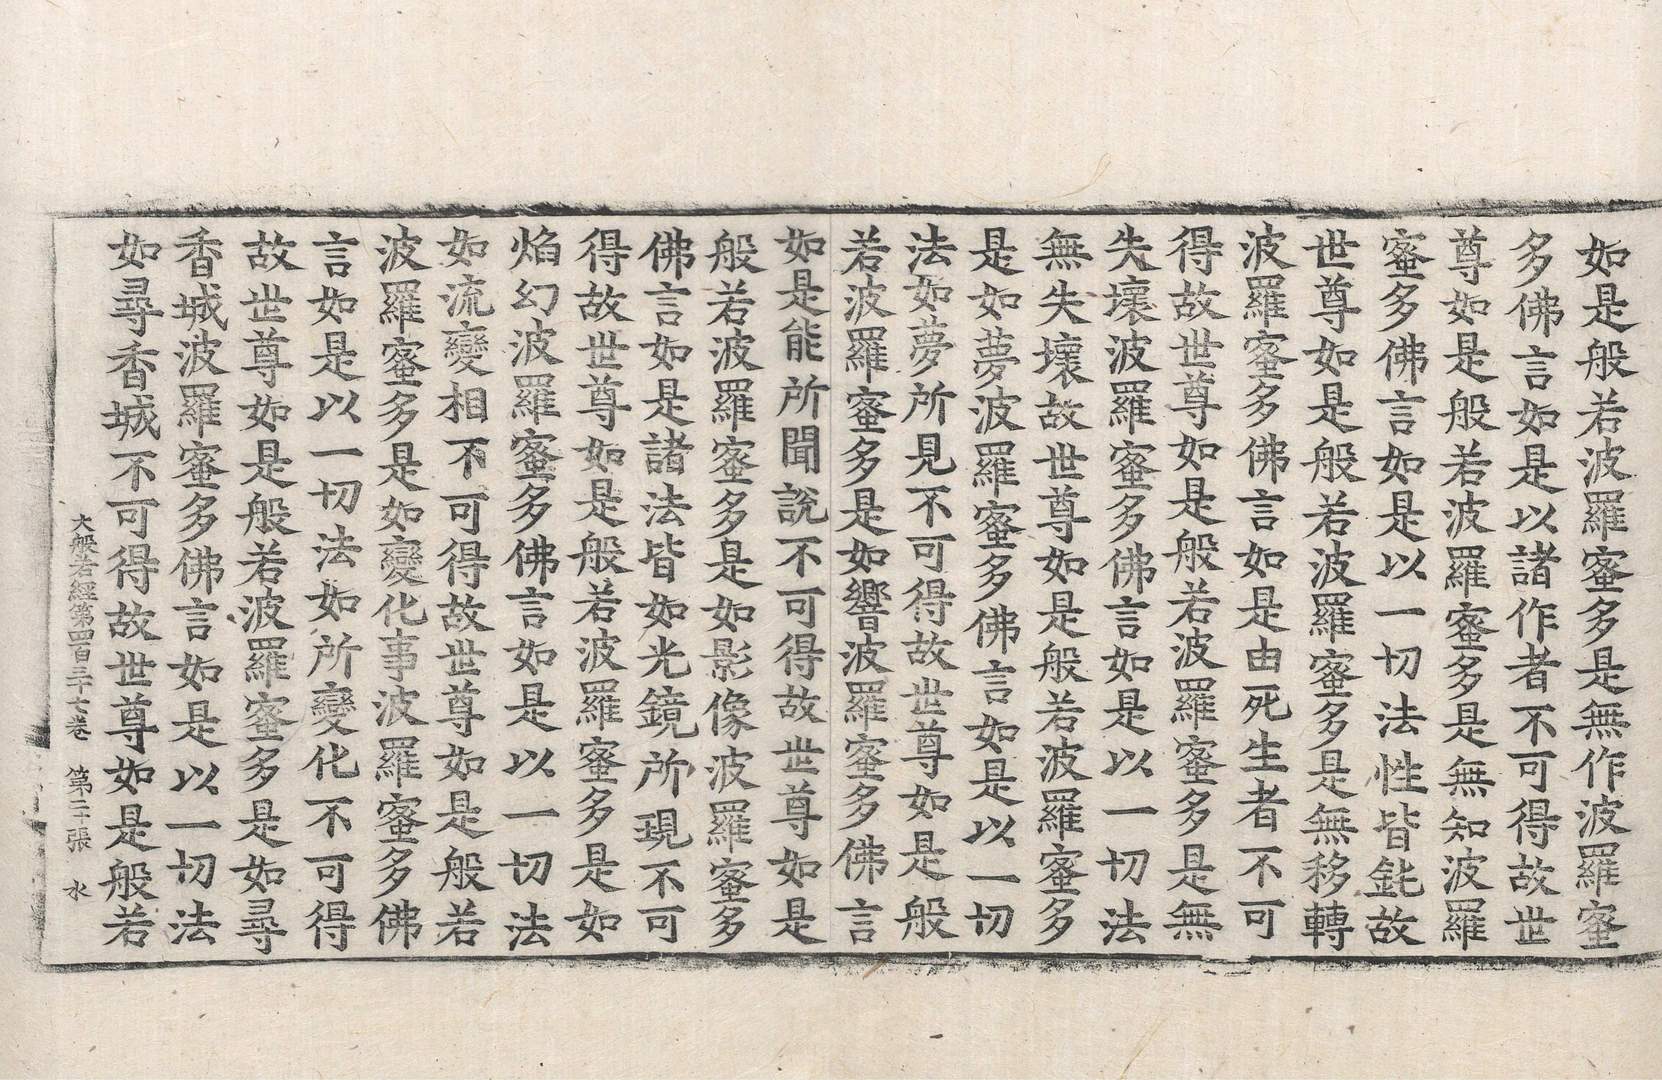 如是般若波羅蜜多是無作波羅蜜
多佛言如是以諸作者不可得故世
尊如是般若波羅蜜多是無知波羅
蜜多佛言如是以一切法性皆鈍故
世尊如是般若波羅蜜多是無移轉
波羅蜜多佛言如是由死生者不可
得故世尊如是般若波羅蜜多是無
失壞波羅蜜多佛言如是以一切法
無失壞故世尊如是般若波羅蜜多
是如夢波羅蜜多佛言如是以一切
法如夢所見不可得故世尊如是般
若波羅蜜多是如響波羅蜜多佛言
如是能所聞說不可得故世尊如是
般若波羅蜜多是如影像波羅蜜多
佛言如是諸法皆如光鏡所現不可
得故世尊如是般若波羅蜜多是如
焰幻波羅蜜多佛言如是以一切法
如流變相不可得故世尊如是般若
波羅蜜多是如變化事波羅蜜多佛
言如是以一切法如所變化不可得
故世尊如是般若波羅蜜多是如尋
香城波羅蜜多佛言如是以一切法
如尋香城不可得故世尊如是般若
大般若經第四百三十七卷　第二十張　水